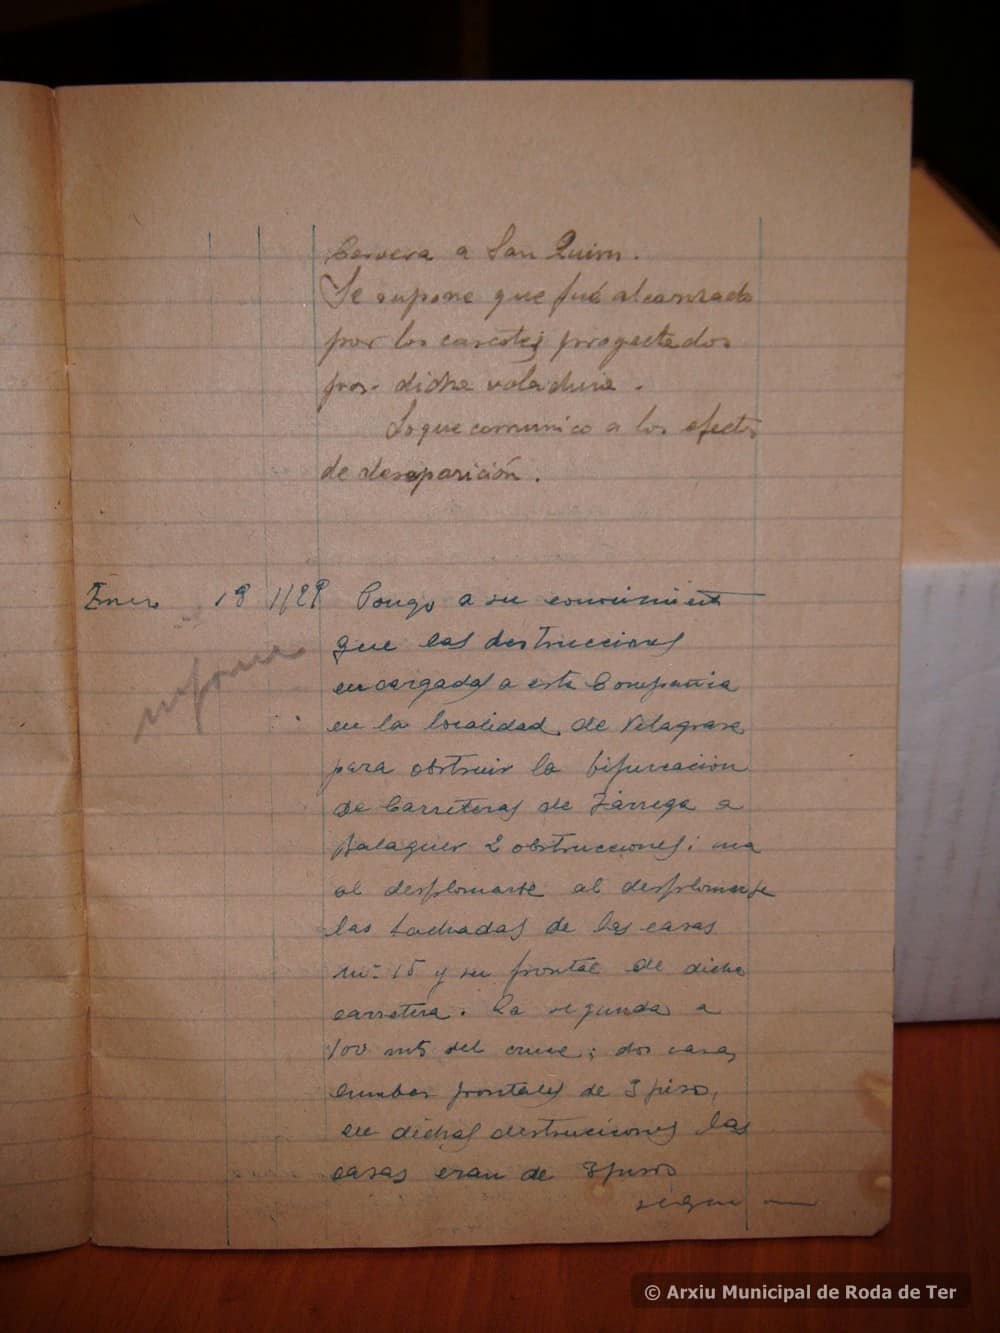 Cervera a San Quirm.
Se supone que fué alcanzado
por los cascotes proyectados
por dicha voladura.
Lo que comunico a los efectos
de desaparición.
Enero 19 1/29 Pongo a su conocimiento
que las destrucciones
encargadas a esta Compañia
informe
en la localidad de Vilagrasa
para obstruir la bifurcación
de Carreteras de Tárrega a
Balaguer 2 obstrucciones; una
al desplomarse al desplomarse
las fachadas de las casas
nº 15 y su frontal de dicha
carretera. La segunda a
100 mts del cruce; dos casas
ambas frontales de 3 pisos,
en dichas destrucciones las
casas eran de 3 pisos
sigue —
© Arxiu Municipal de Roda de Ter